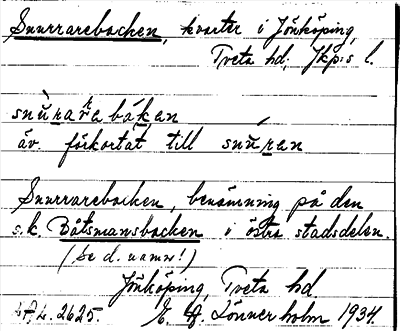 Snurrarebacken, kvarter i Jönköping,
Tveta hd; Jkp:s l.
snùrarabákan
äv. förkortat till snùran
Snurrarebacken, benämning på den
s.k. Båtsmansbacken i östra stadsdelen.
(Se d. namn!)
Jönköping, Tveta hd
2625. Lönnerholm 1934